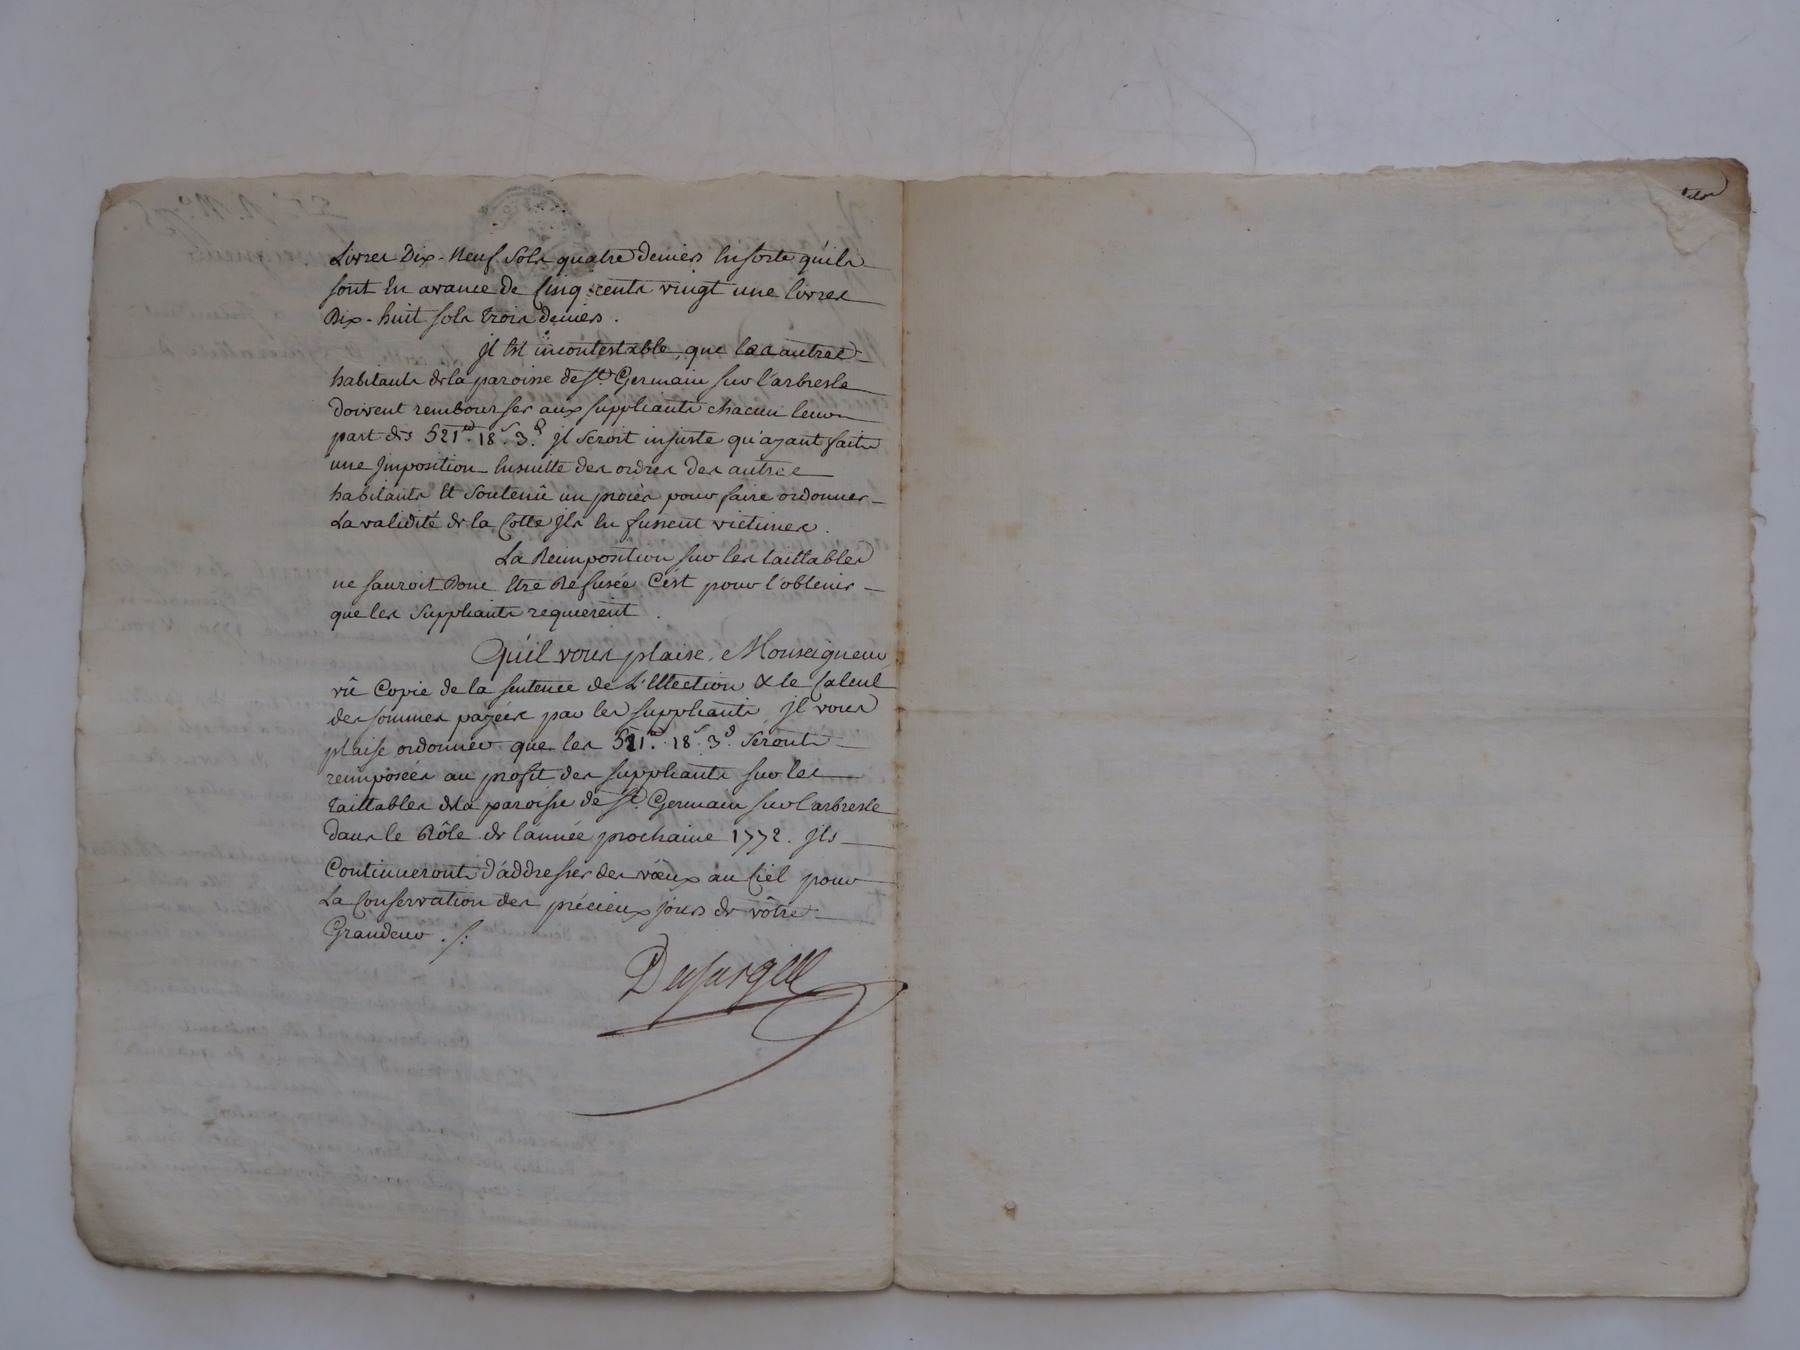 Livres Dix-Neuf sols quatre deniers Ensorte qu'ils
sont En avance de Cinq cents vingt une livres
Dix-huit sols trois Deniers.
jl Est incontestable, que les autres
habitants de la paroisse de St. Germain sur l'arbresle
doivent rembourser aux suppliants chacun leur
part des 521tt. 18s. 3d. jl seroit injuste qu'ayant fait
une jmposition Ensuitte des ordres des autres
habitants Et soutenû un procès pour faire ordonner
La validité de la Cotte jls En fussent victimes.
La Reimposition sur les taillables
ne sauroit Donc Etre Refusée C'est pour l'obtenir
que les suppliants requierent.
Qu'il vous plaise, Monseigneur
vû Copie de la sentence de L'Election & le Calcul
des sommes payées par les suppliants jl vous
plaise ordonner que les 521tt. 18s. 3d. seront
reimposées au profit des suppliants sur les
taillables de la paroisse de St. Germain sur l'arbresle
dans le Rôle de l'année prochaine 1772. jls
Continueront d'addresser des vœux au Ciel pour
La Conservation des précieux jours de vôtre
Grandeur ./: